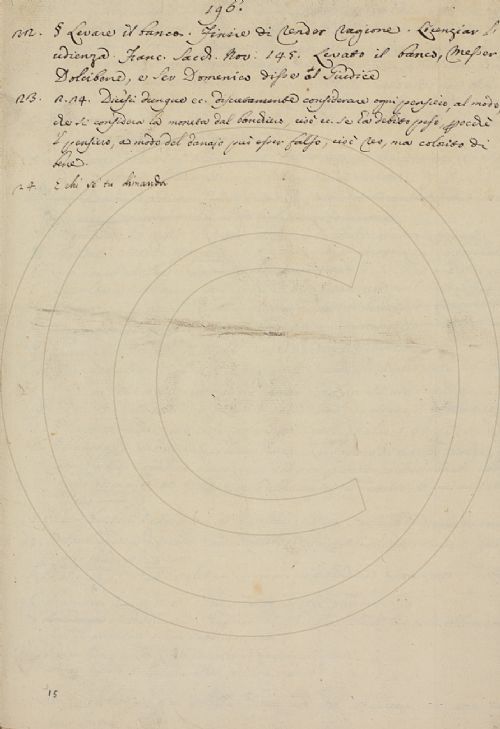 196.
22. § Levare il banco. Finire di render ragione. Licenziar l'
udienza. Franc. Sacch. Nov. 145. Levato il banco, Messer
Dolcibene, e Ser Domenico disse al Giudice
23. n. 24. Dicesi dunque ec. discretamente considerare ogni pensiero, al modo
che si considera la moneta dal banchiere cioè ec. se ha debito peso, perchè
il pensiero, a modo del danajo può esser falso, cioè reo, ma colorito di
bene.
24. E chi se' tu dimanda
15